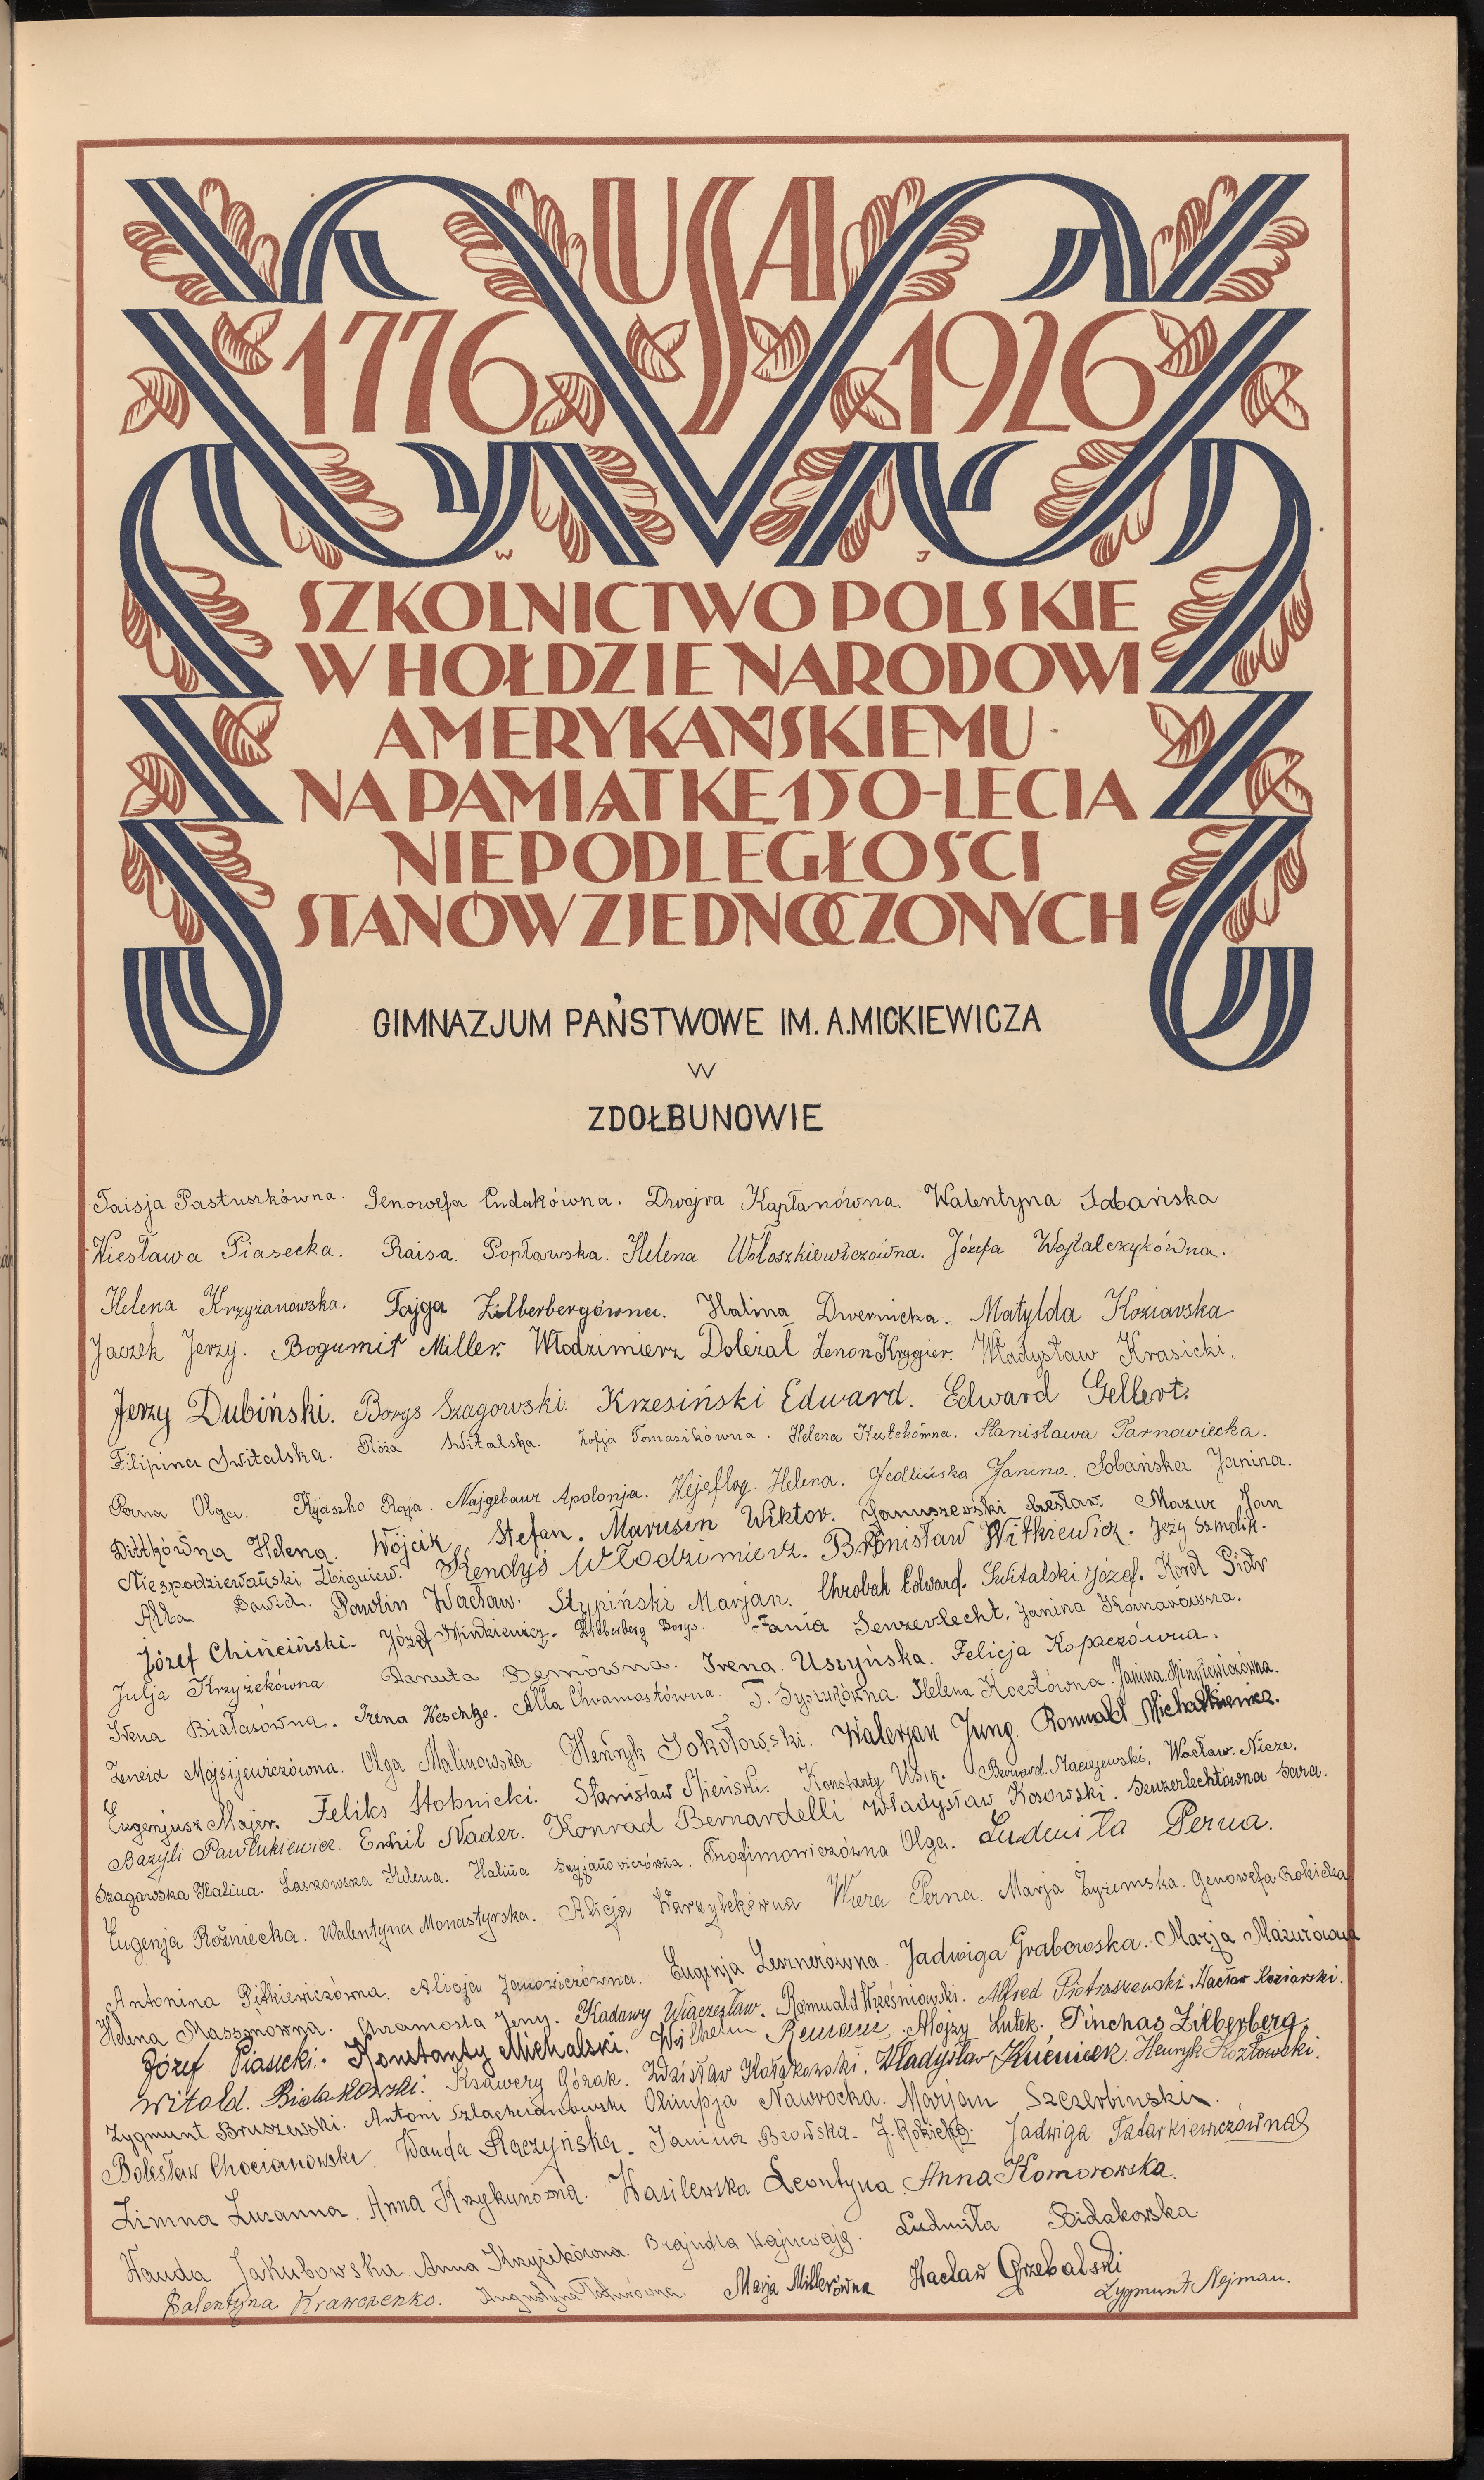 USA
1776 1926
W J
SZKOLNICTWO POLSKIE
W HOŁDZIE NARODOWI
AMERYKAŃSKIEMU
NA PAMIĄTKĘ 150-LECIA
NIEPODLEGŁOŚCI
STANÓW ZJEDNOCZONYCH
GIMNAZJUM PAŃSTWOWE IM. A. MICKIEWICZA
W
ZDOŁBUNOWIE
Taisja Pastuszkówna. Genowefa Dudakówna. Dwojra Kapłanówna. Walentyna Sobańska
Wiesława Piasecka. Raisa Popławska. Helena Wołoszkiewiczówna. Józefa Wojtalczykówna.
Helena Krzyżanowska. Fajga Zilberbergówna. Halina Dwernicka. Matylda Koziarska
Jaczek Jerzy. Bogumił Miller. Włodzimierz Doleżal Zenon Krygier. Władysław Krasicki.
Jerzy Dubiński. Borys Szagowski. Krzesiński Edward. Edward Gellert.
Filipina Switalska. Róża Switalska. Zofja Tomasikówna. Helena Kutekówna. Stanisława Tarnawiecka.
Perna Olga. Kijaszko Raja. Najgebaur Apolonja. Helena. Jedlińska Janina. Sobańska Janina.
Dittkówna Helena. Wójcik Stefan. Marusin Wiktor. Januszewski Czesław. Mazur Jan
Niespodziewański Zbigniew. Kendyś Włodzimierz. Bronisław Witkiewicz. Jeży Szmolik.
Dawid. Pawlin Wacław. Stypiński Marjan. Chrobak Edward. Switalski Józef. Korol Piotr
Józef Chińciński. Józef Mindziewicz. Zilberberg Borys. Fania Senzerlecht. Janina Komarowska.
Julja Krzyżekówna. Danuta Bemówna. Irena Uszyńska. Felicja Kopaczówna.
Irena Białasówna. Irena Weschtze. Alla Chramostówna. T. Helena Kocotówna. Janina
Zeneida Mojsijewiczówna. Olga Malinowska Henryk Sokołowski. Walerjan Jung. Romuald Michałkiewicz.
Eugenjusz Majer. Feliks Stobnicki. Stanisław Konstanty Usik. Bernard Maciejewski. Wacław Nicze.
Bazyli Pawlukiewicz. Emil Nader. Konrad Bernardelli Władysław Kosowski. Senzerlechtówna Sara.
Szagowska Halina. Laskowska Helena. Halina Szyjanowiczówna. Trofimowiczówna Olga. Ludmiła Perna.
Eugenja Roźniecka. Walentyna Monastyrska. Alicja Warzylekówna Wiera Perna. Marja Żyżemska. Genowefa Rokicka
Antonina Pitkiewiczówna. Alicja Janowiczówna. Eugenja Lesznerówna. Jadwiga Grabowska. Marja Mazurówna
Helena Massonówna. Chramosta Jerzy. Kadawy Wiaczesław. Romuald Wześniowski. Alfred Piotraszewski. Wacław Koziarski.
Józef Piasecki. Konstanty Michalski. Wilhelm Remane. Alojzy Lutek. Pinchas Zilberberg.
Witold Białakowski. Ksawery Górak. Zdzisław Kołakowski. Władysław Henryk Kozłowski.
Zygmunt Bruszewski. Antoni Szlachcianowski Olimpja Nawrocka. Marjan Szczerbinski.
Bolesław Chocianowski. Wanda Raczyńska. Janina Bzowska. J. Rokicka. Jadwiga Tatarkiewiczówna
Zimna Zuzanna. Anna Krzykunówna. Wasilewska Leontyna. Anna Komorowska.
Wanda Jakubowska. Anna Krzyżekówna. Brajndla Ludmiła Bidakowska.
Walentyna Krawczenko. Augustyna Marja Millerówna Wacław Grzebalski
Zygmunt Nejman.